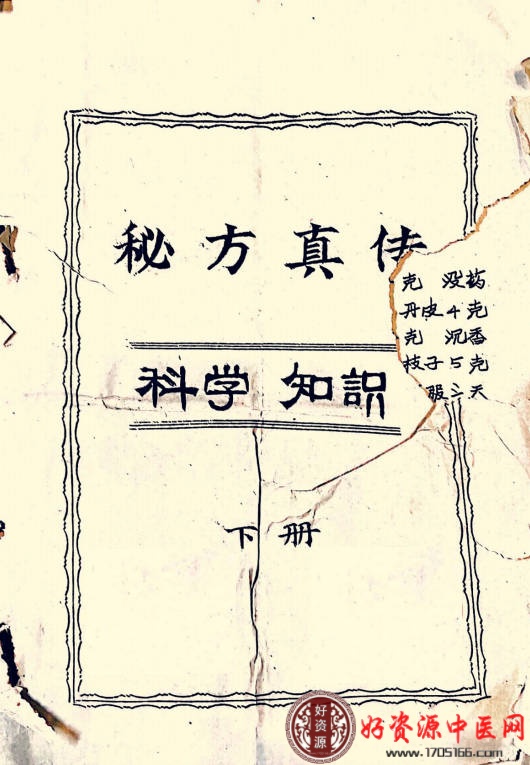 秘方真传
克 没药
丹皮4克
克 沉香
枝子5克
服三天
科学 知识
下册
好资源
好资源中医网
www.1705166.com